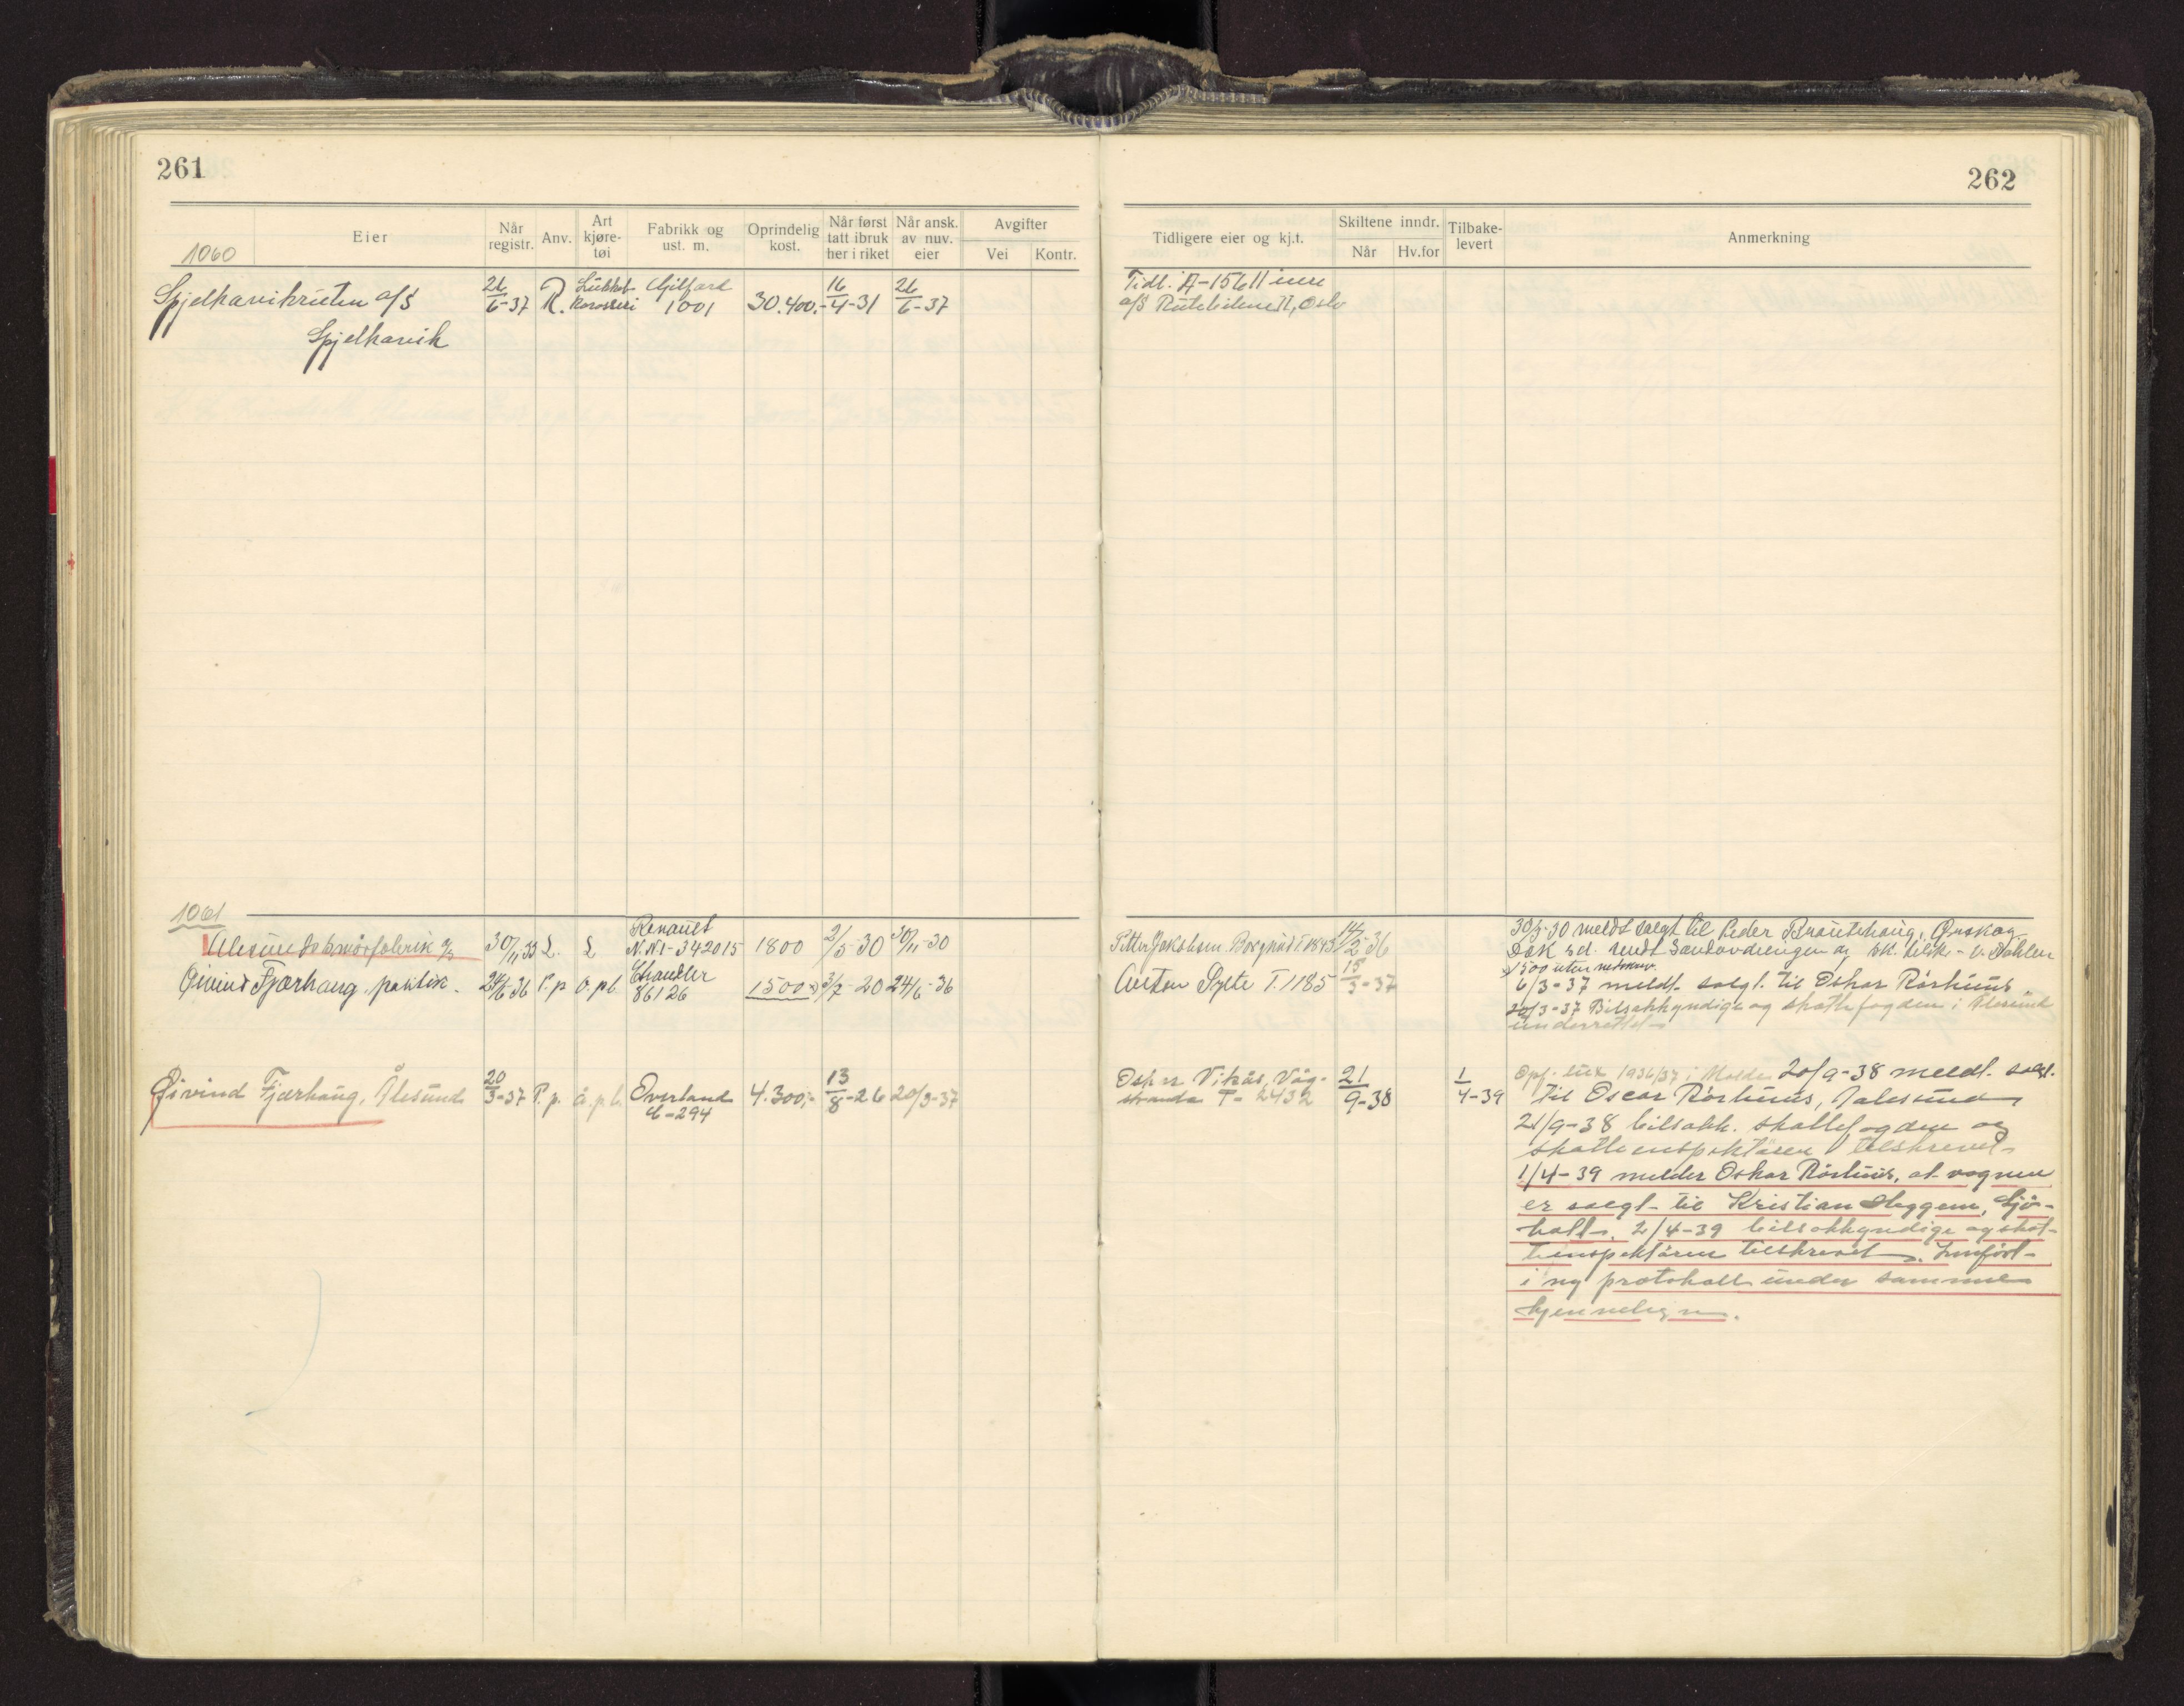 261
Eier
Når registr.
Anv.
Art kjøre-tøi
Fabrikk og ust. m.
Oprindelig kost.
Når først tatt ibruk her i riket
Når ansk. av nuv. eier
Avgifter
Vei
Kontr.
1060
Spjelkavikruten a/s 26/6-37 R. Lukket Gilford 16/4-31 26/6-37
Karosseri 1001 30.400,-
Spjelkavik
1061
Renault
Alesunds smørfabrik a/s 30/11 33 L. L N.N1-342015 1800 2/5-30 30/11-30
Øivind Fjørhaug. politik. 24/6-36 P.p å.pb. Chandler 86126 1500 x) 3/7-20 24/6-36
Øivind Fjørhaug, Ålesund 20/3-37 P.p. å.p.b. Overland 4.300,- 13/8-26 20/3-37
4-294
262
Tidligere eier og kj.t.
Skiltene inndr.
Når
Hv.for
Tilbake-levert
Anmerkning
Tidl. A-15611
a/s Rutebilene, Oslo
Petter Jakobsen. Borgund T.1843 14/2-36
Anton Sylte T.1185 15/3-37
30/3-30 meldt solgt til Peder Brautehaug, Ørskog
x) 1500 uten
6/3-37 meldt solgt til Oskar Rørhuus
20/3-37 Bilsakkyndige og skattefogden i Ålesund
underrettet
Oskar Vikås, Våg- 21/9-38 1/4-39
stranda T-2432
1936/37 i Molde 20/9-38 meldt solgt.
til Oscar Rörhuus, Aalesund
21/9-38 bilsakk. skattefogden og
skatteinspektören tilskrevet
1/4-39 melder Oskar Rørhuus, at vognen
er solgt til Kristian Heggem, Sjö-
holt. 2/4-39 bilsakkyndige og skat-
teinspektören tilskrevet. Innført
i ny protokoll under samme
kjennetegn.